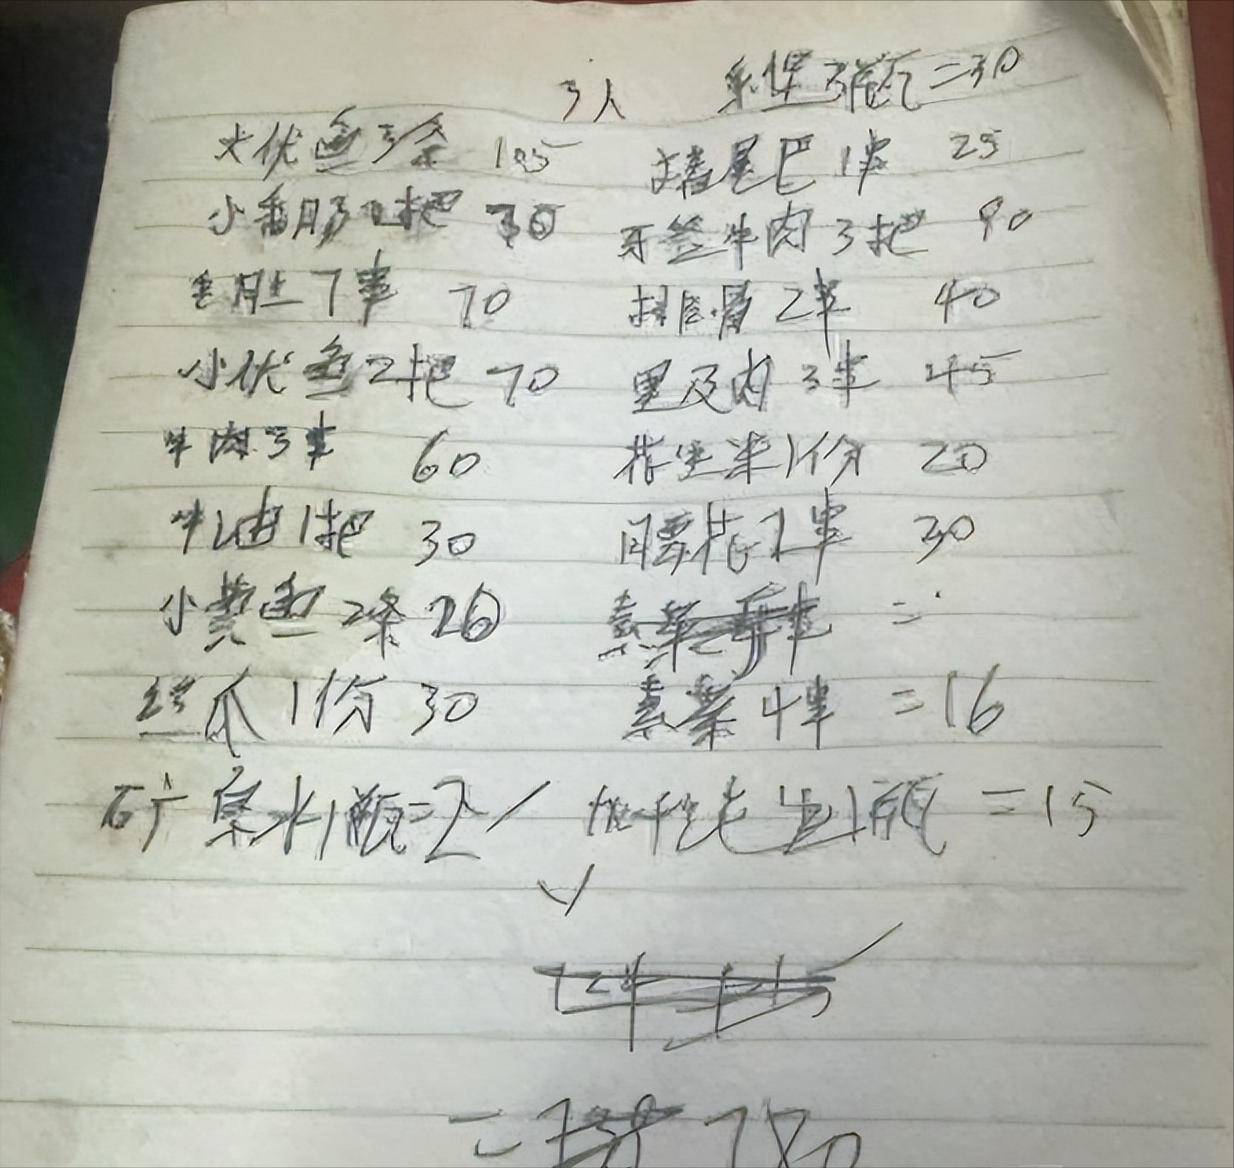 3人 3瓶=30
大优鱼3条 105 猪尾巴1串 25
小香肠2把 30 牙签牛肉3把 90
毛肚7串 70 排骨2串 40
小优鱼2把 70 里及肉3串 45
牛肉3串 60 花生米1份 20
牛油1把 30 腰花2串 30
小黄鱼2条 26 =
丝瓜1份 30 素菜4串 =16
矿泉水1瓶=2 1瓶 =15
= 780